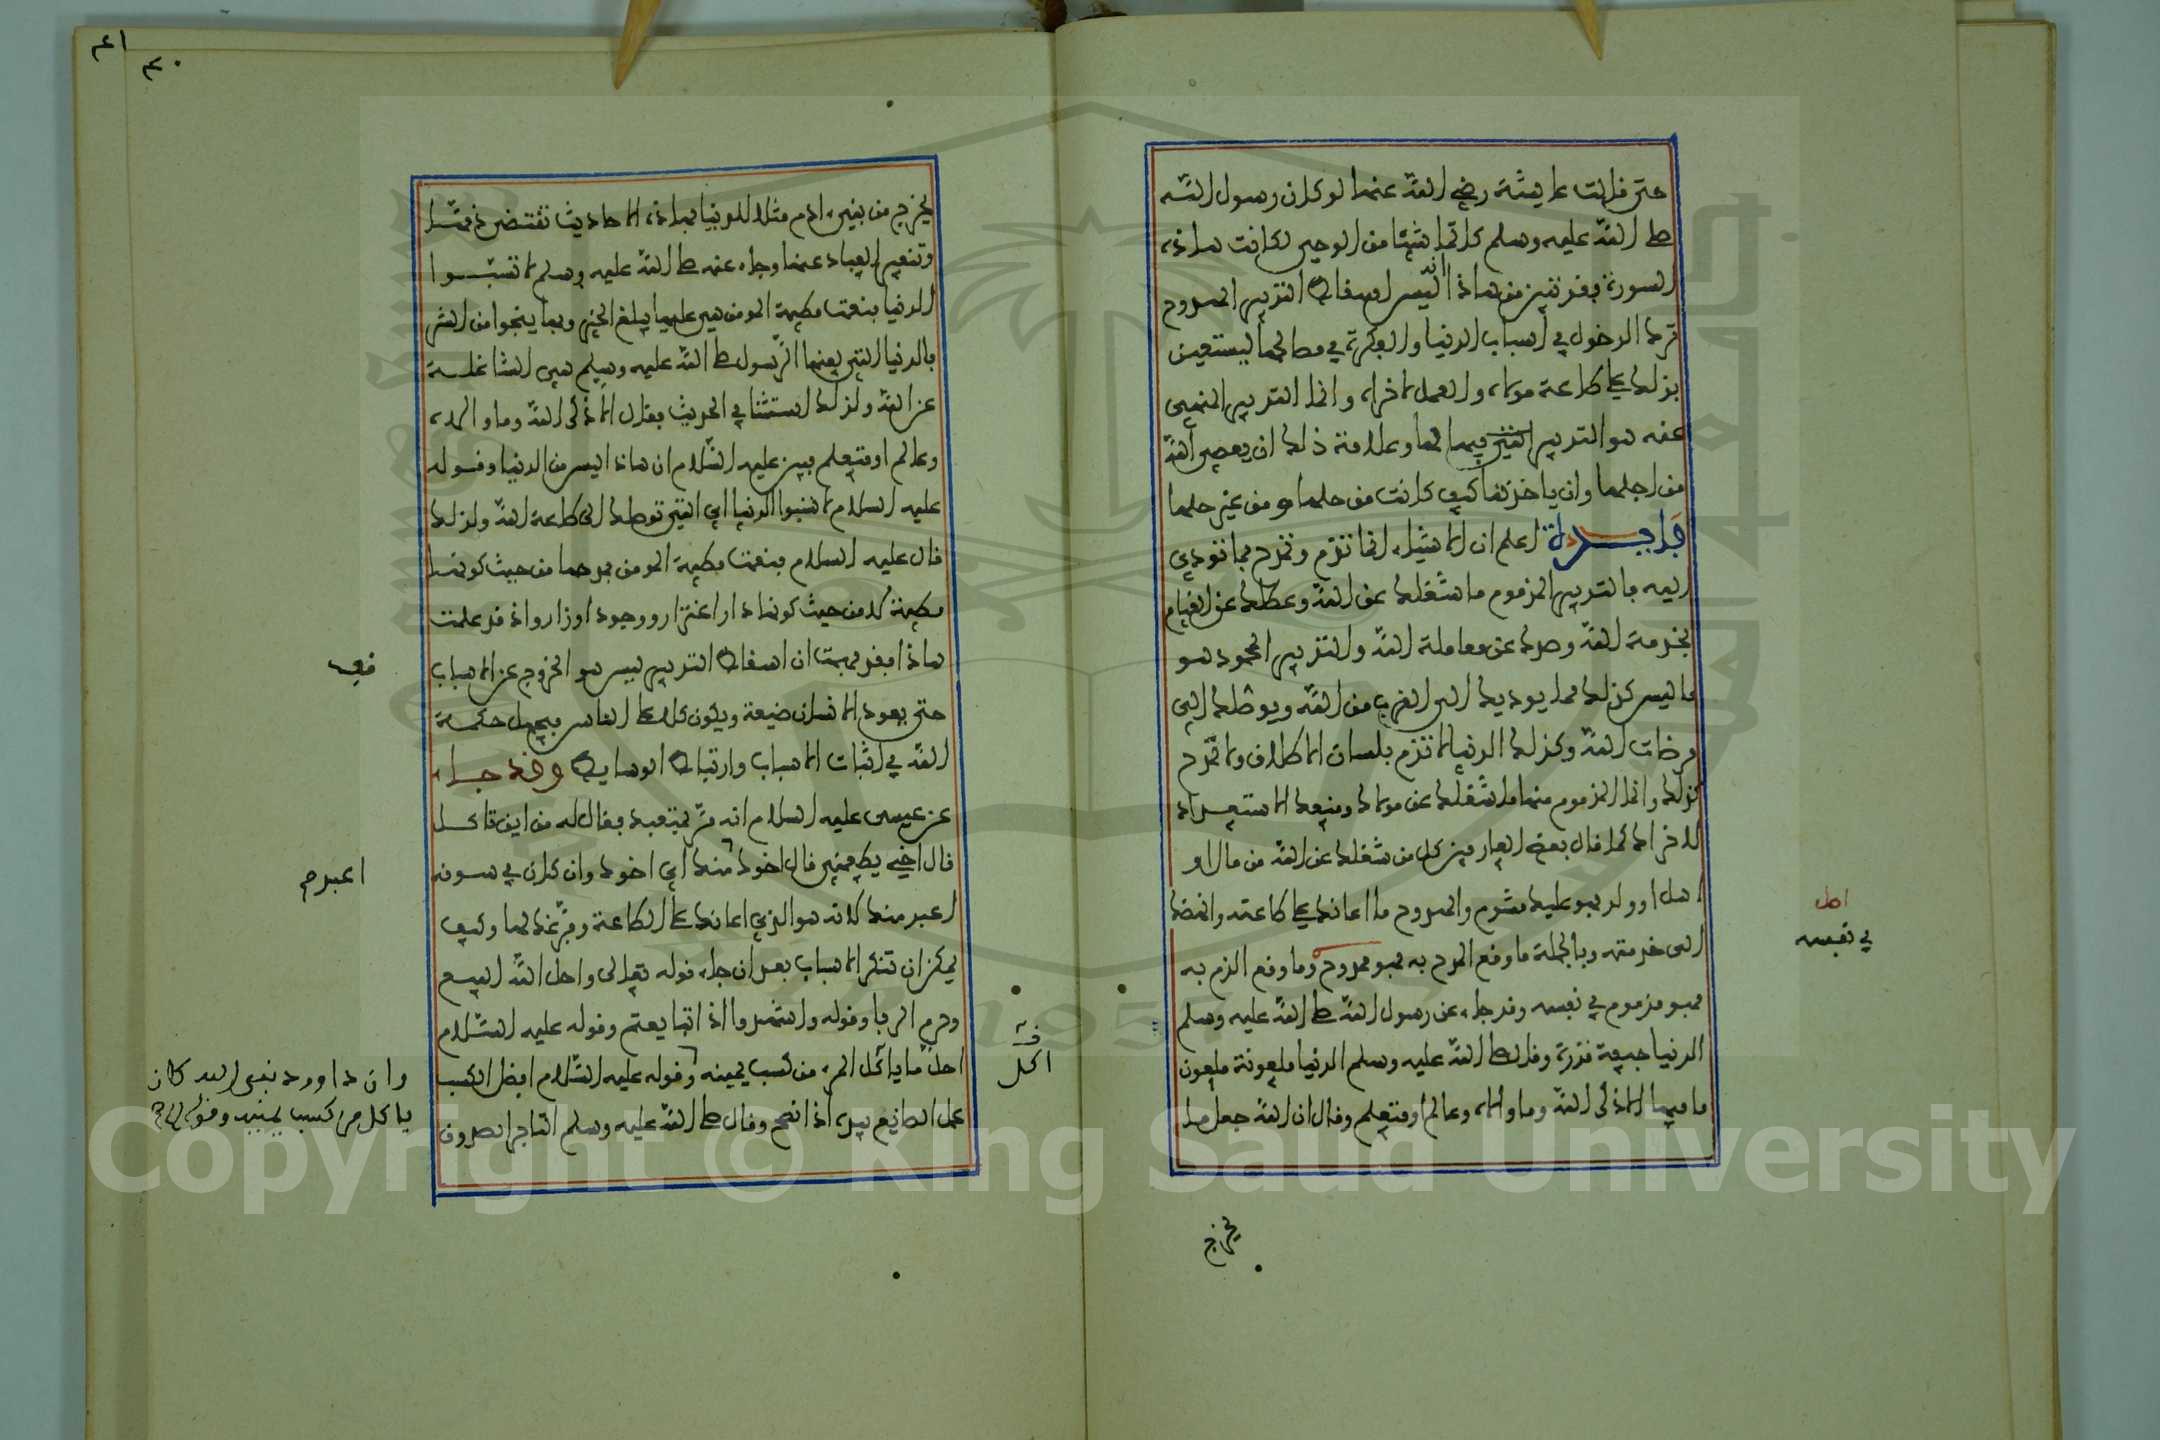 حتى قالت عايشة رضي الله عنها لو كان رسول الله
صلى الله عليه وسلم كاتما شيئا من الوحي لكانت هاذه
السورة فقد تبين من هاذا انه ليس اسقاط التدبير الممدوح
ترك الدخول في اسباب الدنيا والفكرة في مصالحها ليستعين
بذلك على طاعة مولاه والعمل لاخراه وانما التدبير المنهي
عنه هو التدبير فيها لها وعلامة ذلك ان يعصي الله
من اجلها وان ياخذها كيف كانت من حلها و من غير حلها
فايدة اعلم ان الاشياء انما تذم وتمدح بما تودي
اليه فالتدبير المذموم ما شغلك عن الله وعطلك عن القيام
بخدمة الله وصدك عن معاملة الله والتدبير المحمود هو
ما ليس كذلك مما يوديك الى القرب من الله ويوصلك الى
مرضات الله وكذلك الدنيا لا تذم بلسان الاطلاق ولا تمدح
كذلك وانما المذموم منها ما شغلك عن مولاك ومنعك الاستعداد
لاخراك كما قال بعض العارفين كل من شغلك عن الله من مال او
اهل او ولد فهو عليك مشوم والممدوح ما اعانك على طاعته وانهضك
الى خدمته وبالجملة ما وقع المدح به فهو ممدوح وما وقع الذم به
فهو مذموم في نفسه وقد جاء عن رسول الله صلى الله عليه وسلم
الدنيا جيفة قذرة وقال صلى الله عليه وسلم الدنيا ملعونة ملعون
ما فيها الا ذكر الله وما والاه وعالم او متعلم وقال ان الله جعل ما
اصل
في نفسه
يخرج
يخرج من بني ادم مثلا للدنيا فهاذه الاحاديث تقتضي ذمها
وتنفير العباد عنها وجاء عنه صلى الله عليه وسلم لا تسبوا
الدنيا فنعمت مطية المومن هي عليها يبلغ الخير وبها ينجوا من الشر
فالدنيا التي لعنها الرسول صلى الله عليه وسلم هي الشاغلة
عن الله ولذلك استثنا في الحديث فقال الا ذكر الله وما والاه
وعالم او متعلم فبين عليه السلام ان هاذا ليس من الدنيا وقوله
عليه السلام لا تسبوا الدنيا اي التي توصلك الى طاعة الله ولذلك
قال عليه السلام فنعمت مطية المومن فمدحها من حيث كونها
مطية لا من حيث كونها دار اغترار ووجود اوزار واذ قد علمت
هاذا فقد فهمت ان اسقاط التدبير ليس هو الخروج عن الاسباب
حتى يعود الانسان ضيعة ويكون كلا على الناس فيجهل حكمة
الله في اثبات الاسباب وارتباط الوسايط وقد جاء
عن عيسى عليه السلام انه مر بمتعبد فقال له من اين تاكل
قال اخي يطعمني قال اخوك اعبد منك اي اخوك وان كان في سوقه
اعبد منك لانه هو الذي اعانك على الطاعة وفرغك لها وكيف
يمكن ان تنكر الاسباب بعد ان جاء قوله تعالى واحل الله البيع
وحرم الربا وقوله واشهدوا اذا تبايعتم وقوله عليه السلام
احل ما ياكل المرء من كسب يمينه وقوله عليه السلام افضل الكسب
عمل الصانع بيده اذا نصح وقال صلى الله عليه وسلم التاجر الصدوق
اعبد م
وان داوود نبي الله كان
ياكل من كسب يمينه وقوله
اكل